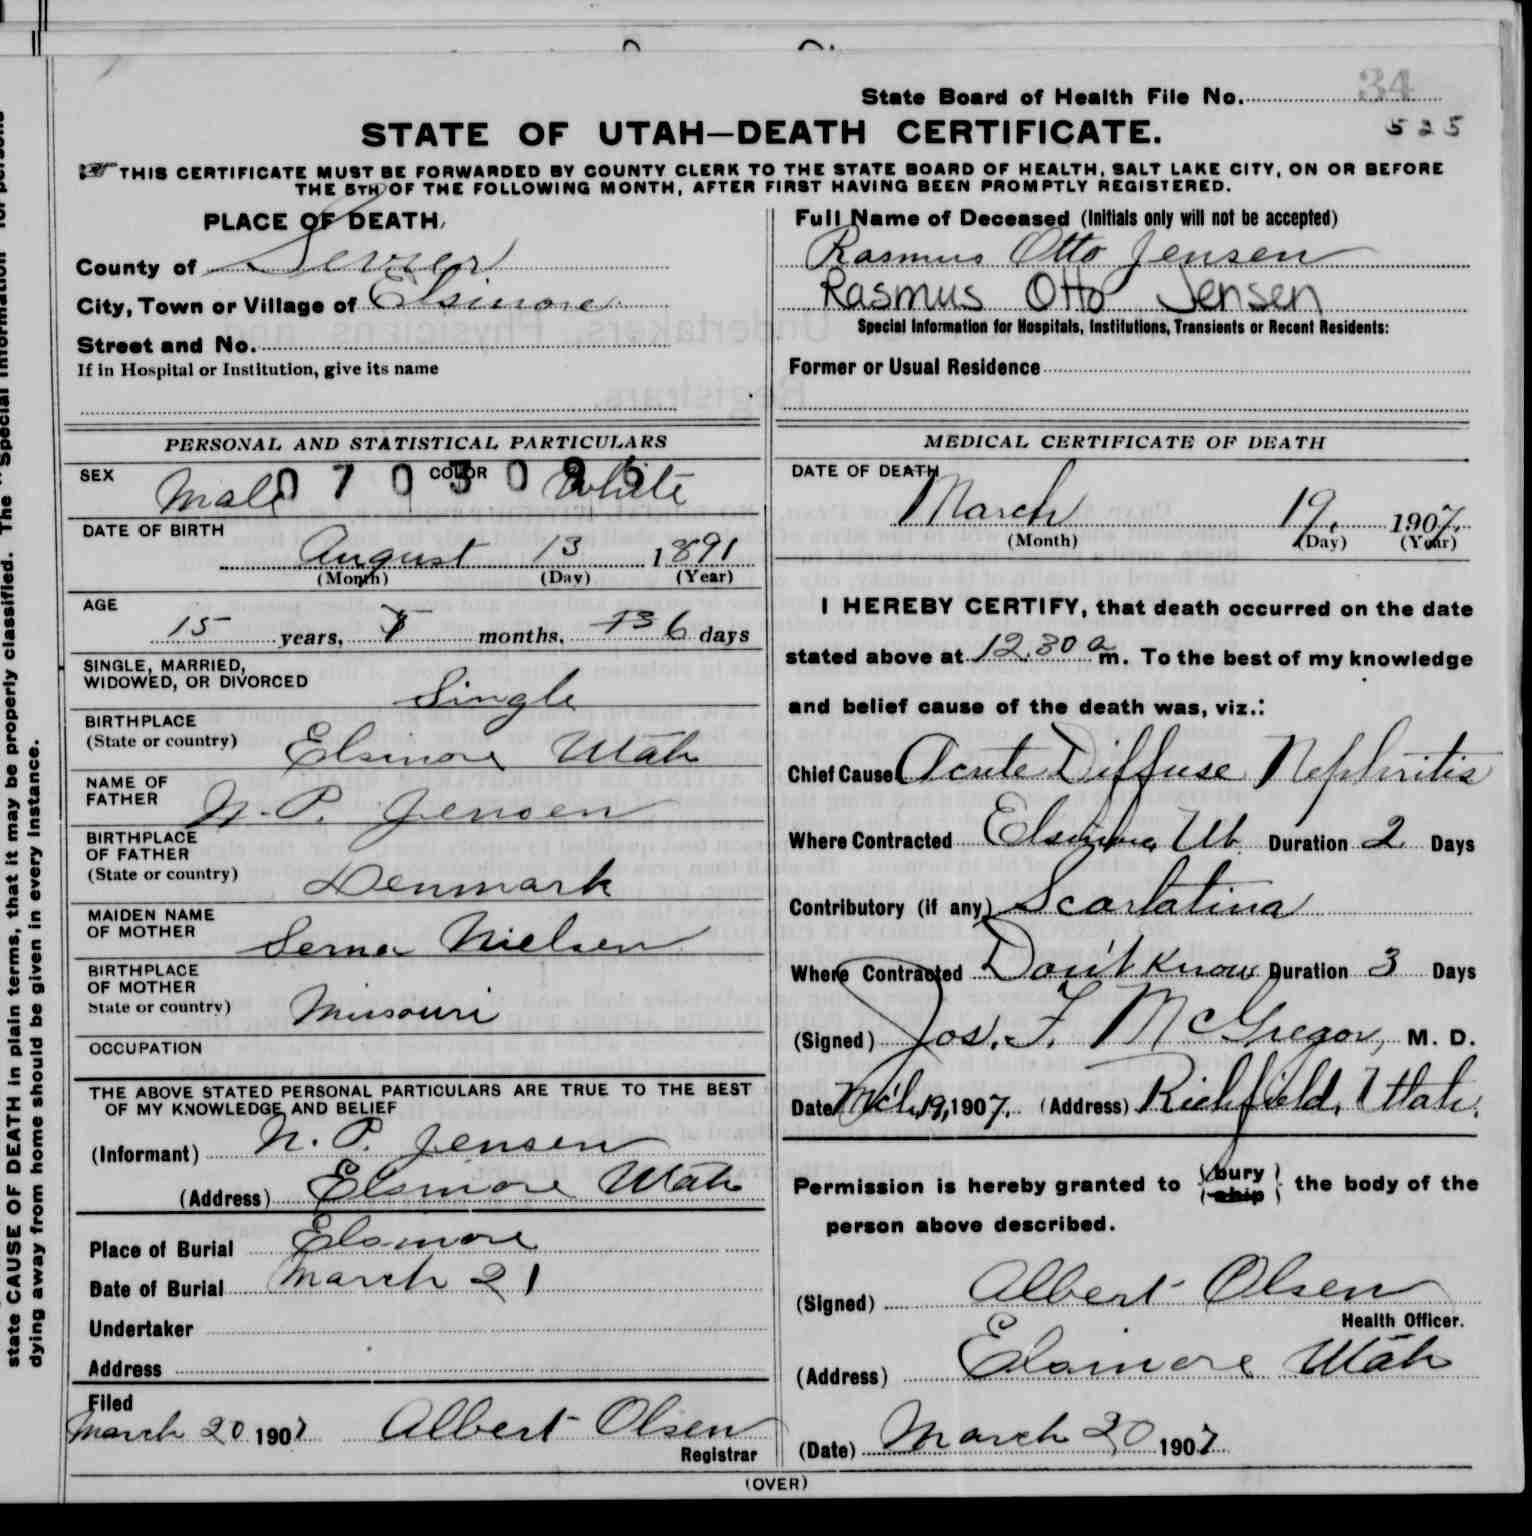 State Board of Health File No. 34
STATE OF UTAH—DEATH CERTIFICATE. 525
THIS CERTIFICATE MUST BE FORWARDED BY COUNTY CLERK TO THE STATE BOARD OF HEALTH, SALT LAKE CITY, ON OR BEFORE
THE 5TH OF THE FOLLOWING MONTH, AFTER FIRST HAVING BEEN PROMPTLY REGISTERED.
PLACE OF DEATH,
County of Sevier
City, Town or Village of Elsinore
Street and No.
If in Hospital or Institution, give its name
Full Name of Deceased (Initials only will not be accepted)
Rasmus Otto Jensen
Rasmus Otto Jensen
Special Information for Hospitals, Institutions, Transients or Recent Residents:
Former or Usual Residence
PERSONAL AND STATISTICAL PARTICULARS
SEX Male COLOR White
DATE OF BIRTH
August 13 1891
(Month) (Day) (Year)
AGE
15 years, 7 months, 13 6 days
SINGLE, MARRIED,
WIDOWED, OR DIVORCED Single
BIRTHPLACE
(State or country) Elsinore Utah
NAME OF
FATHER N. P. Jensen
BIRTHPLACE
OF FATHER
(State or country) Denmark
MAIDEN NAME
OF MOTHER Serna Nielsen
BIRTHPLACE
OF MOTHER
State or country) Missouri
OCCUPATION
THE ABOVE STATED PERSONAL PARTICULARS ARE TRUE TO THE BEST
OF MY KNOWLEDGE AND BELIEF
(Informant) N. P. Jensen
(Address) Elsinore Utah
Place of Burial Elsinore
Date of Burial March 21
Undertaker
Address
Filed
March 20 1907 Albert Olsen
Registrar
MEDICAL CERTIFICATE OF DEATH
DATE OF DEATH
March 19, 1907.
(Month) (Day) (Year)
I HEREBY CERTIFY, that death occurred on the date
stated above at 12.30 a m. To the best of my knowledge
and belief cause of the death was, viz.:
Chief Cause Acute Diffuse Nephritis
Where Contracted Elsinore Ut. Duration 2 Days
Contributory (if any) Scarlatina
Where Contracted Don't know Duration 3 Days
(Signed) Jos. F. McGregor, M. D.
Date Mch 19, 1907. (Address) Richfield, Utah.
Permission is hereby granted to bury ship the body of the
person above described.
(Signed) Albert Olsen
Health Officer.
(Address) Elsinore Utah
(Date) March 20 1907
(OVER)
state CAUSE OF DEATH in plain terms, that it may be properly classified. The "Special Information" for persons
dying away from home should be given in every instance.